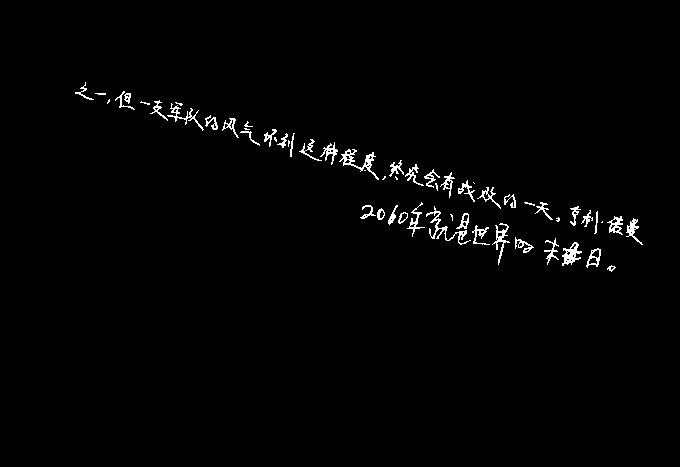 之一,但一支军队的风气坏到这种程度,终究会有战败的一天。亨利·诺曼
2060年就是世界的末日。